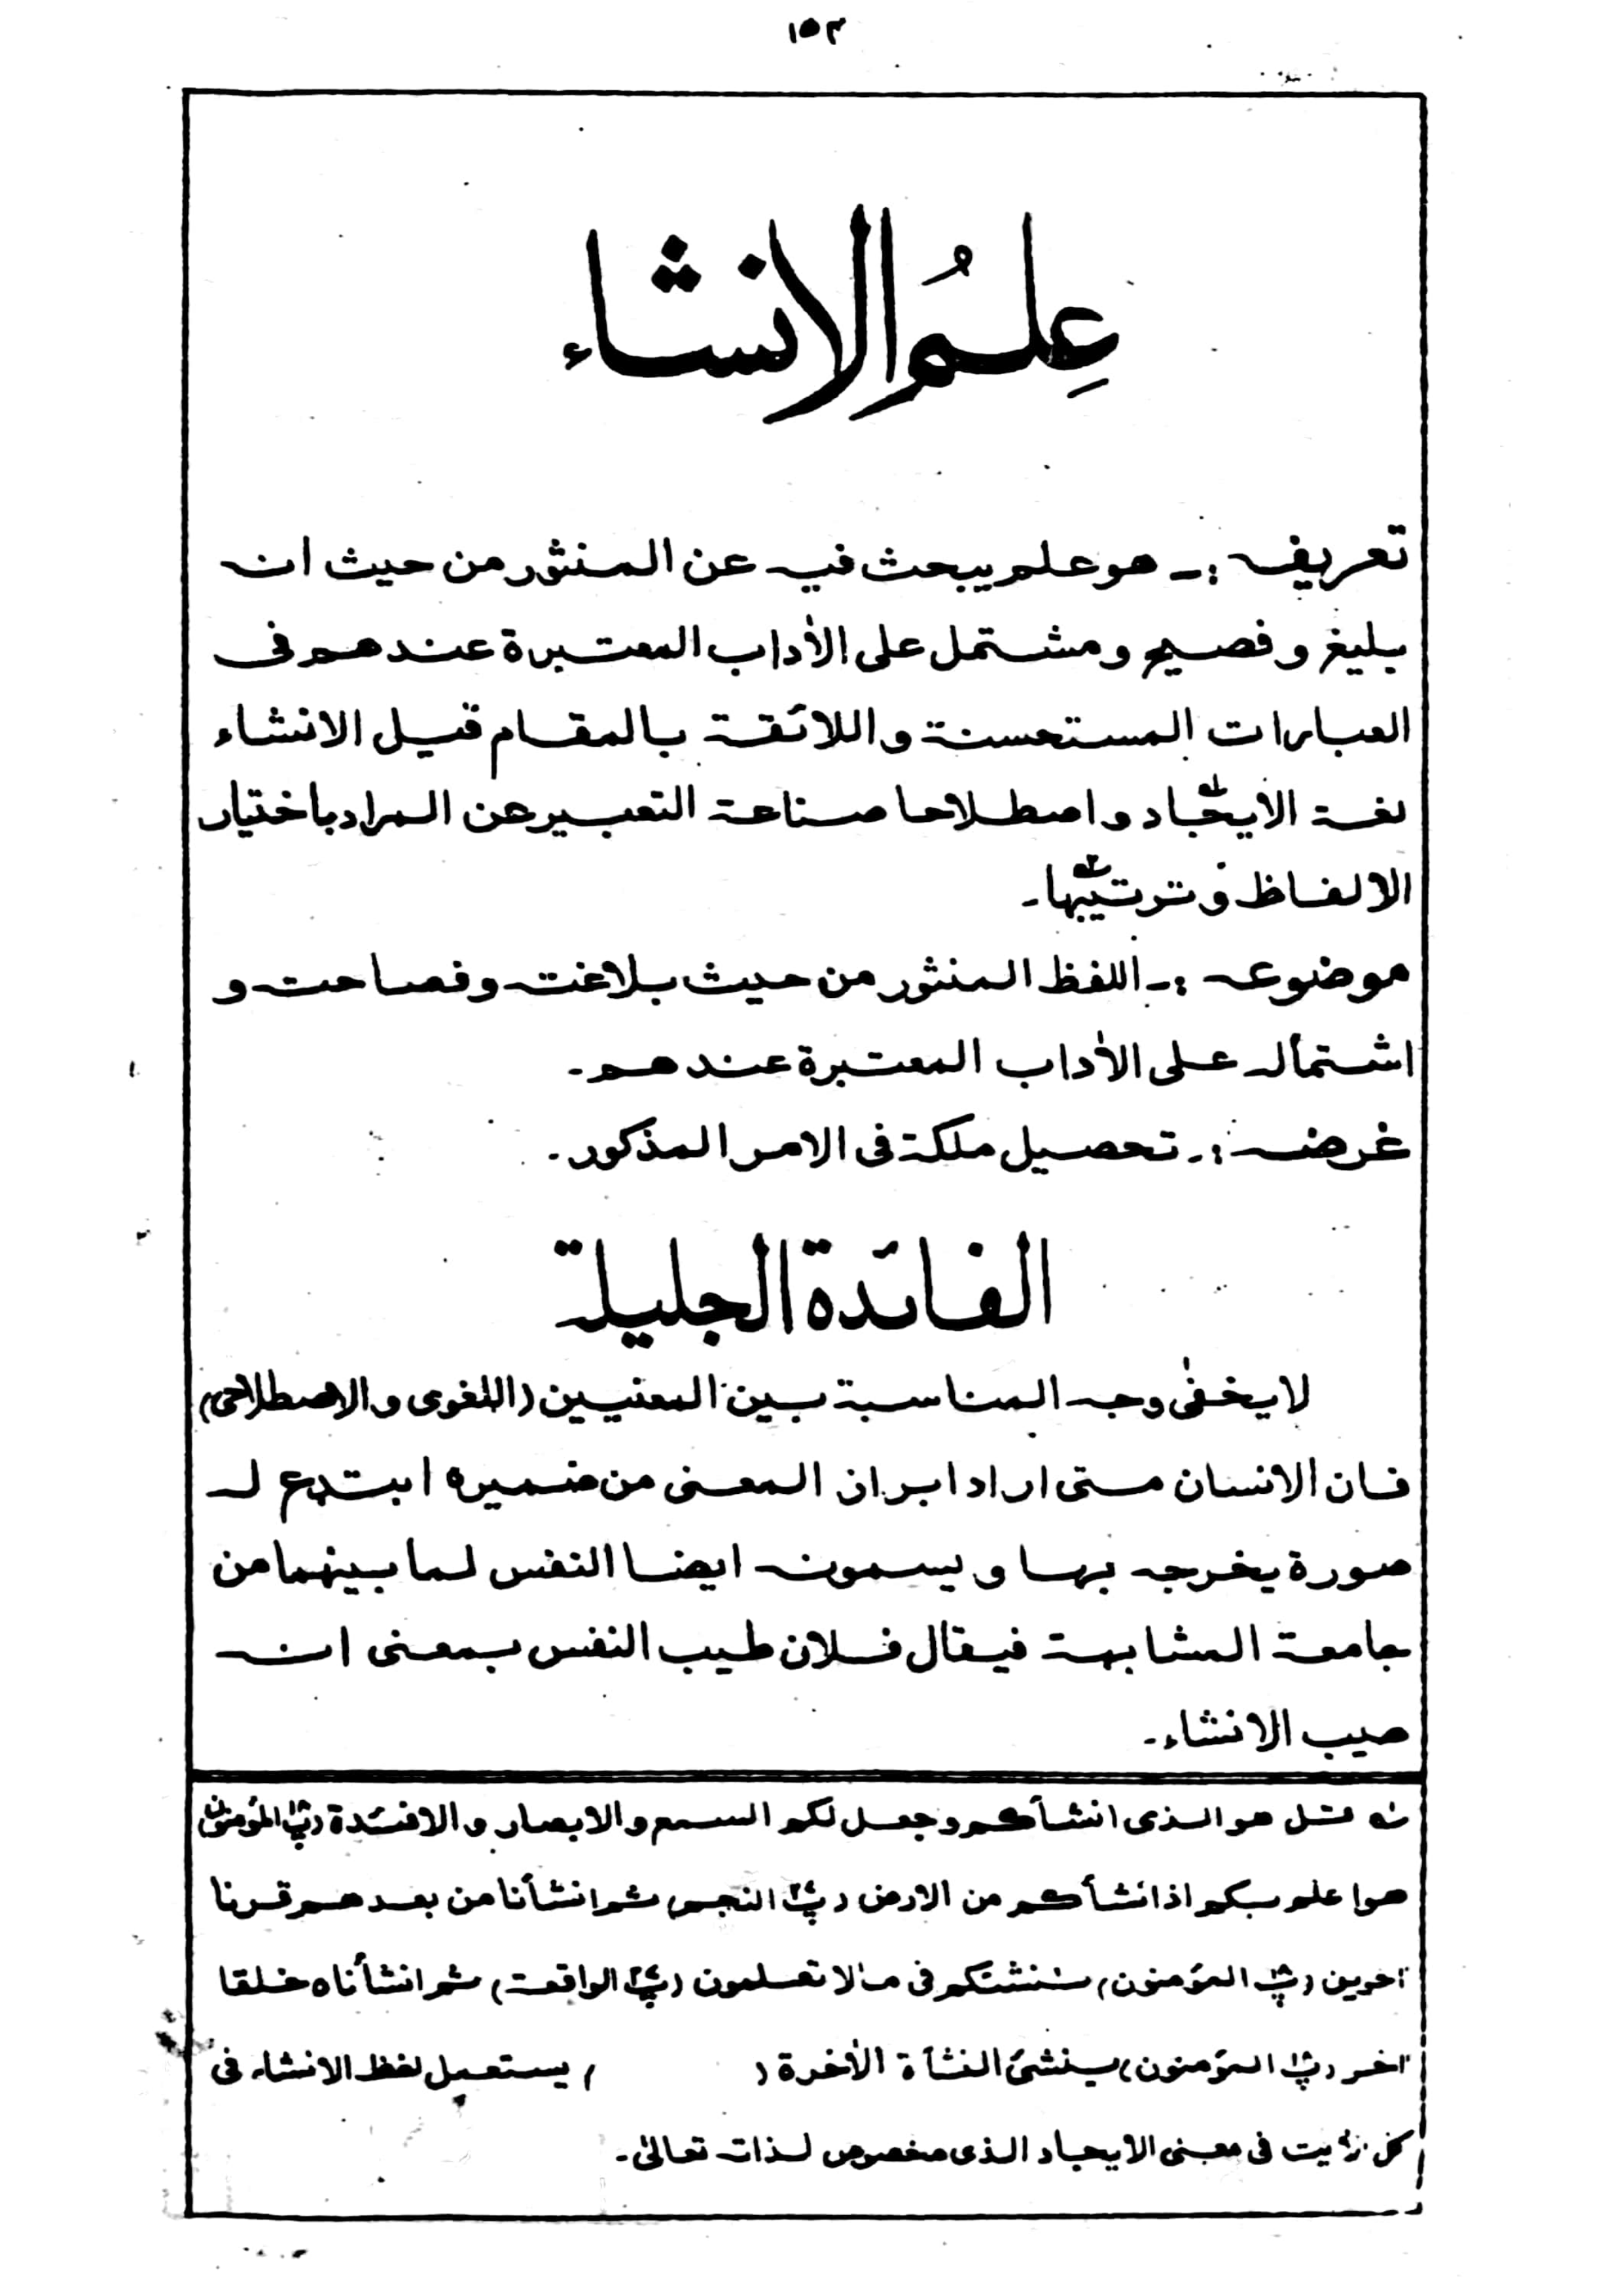 ١٥٣
عِلمُ الانشاء
تعريفه :۔ هو علم يبحث فيه عن المنثور من حيث انه
بليغ و فصيح و مشتمل على الأداب المعتبرة عندهم فى
العبارات المستحسنة واللائقة بالمقام قيل الانشاء
لغة الايجاد واصطلاحا صناعة التعبير عن المراد باختيار
الالفاظ و ترتيبها۔
موضوعه :۔ اللفظ المنثور من حيث بلاغته و فصاحته و
اشتماله على الأداب المعتبرة عندهم۔
غرضه :۔ تحصيل ملكة فى الامر المذكور۔
الفائدة الجليلة
لا يخفىٰ وجه المناسبة بين المعنيين (اللغوى والاصطلاحى)
فان الانسان متى اراد ابراز المعنى من ضميره ابتدع له
صورة يخرجه بها و يسمونه ايضا النفس لما بينهما من
جامعة المشابهة فيقال فلان طيب النفس بمعنى انه
صيب الانشاء۔
قل هو الذى انشأكم وجعل لكم السمع والابصار والافئدة (المؤمنون)
هوا علم بكم اذ انشأكم من الارض ( النجم ثم انشأنا من بعدهم قرنا
آخرين ( المؤمنون) ننشئكم فى مالا تعلمون ( الواقعة) ثم انشأناه خلقا
آخر ( المؤمنون) ينشئ النشأة الأخرة ( ) يستعمل لفظ الانشاء فى
كل أيت فى معنى الايجاد الذى مخصوص لذاته تعالىٰ۔